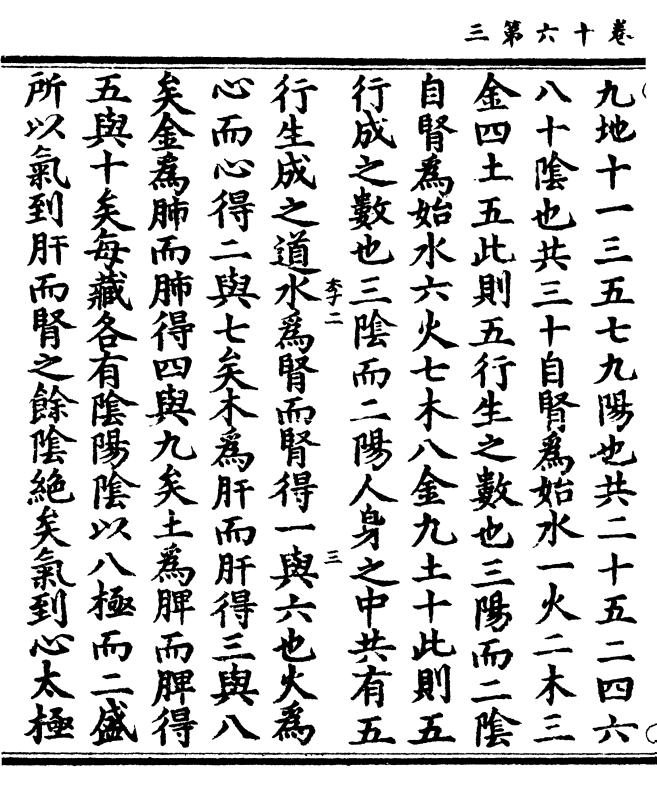 卷十六第三
九地十一三五七九陽也共二十五二四六
八十陰也共三十自腎爲始水一火二木三
金四土五此則五行生之數也三陽而二陰
自腎爲始水六火七木八金九土十此則五
行成之數也三陰而二陽人身之中共有五
李二
三
行生成之道水爲腎而腎得一與六也火爲
心而心得二與七矣木爲肝而肝得三與八
矣金爲肺而肺得四與九矣土爲脾而脾得
五與十矣每藏各有陰陽陰以八極而二盛
所以氣到肝而腎之餘陰絶矣氣到心太極